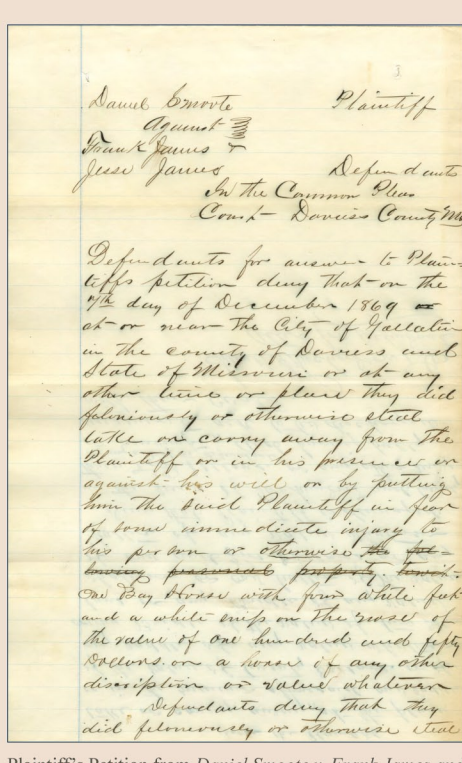 Daniel Smoote Plaintiff
Against
Frank James &
Jesse James Defendants
In the Common Pleas
Court Daviess County Mo
Defendants for answer to Plain=
tiffs petition deny that on the
7th day of December 1869 or
at or near the City of Gallatin
in the county of Daviess and
State of Missouri or at any
other time or place they did
feloniously or otherwise steal
take or carry away from the
Plaintiff or in his presence or
against his will or by putting
him the said Plaintiff in fear
of some immediate injury to
his person or otherwise the fol=
lowing personal property towit:
One Bay Horse with four white feet
and a white snip on the nose of
the value of one hundred and fifty
Dollars. or a horse of any other
discription or value whatever
Defendants deny that they
did feloniously or otherwise steal
Plaintiff's Petition from Daniel Smoote v. Frank James and